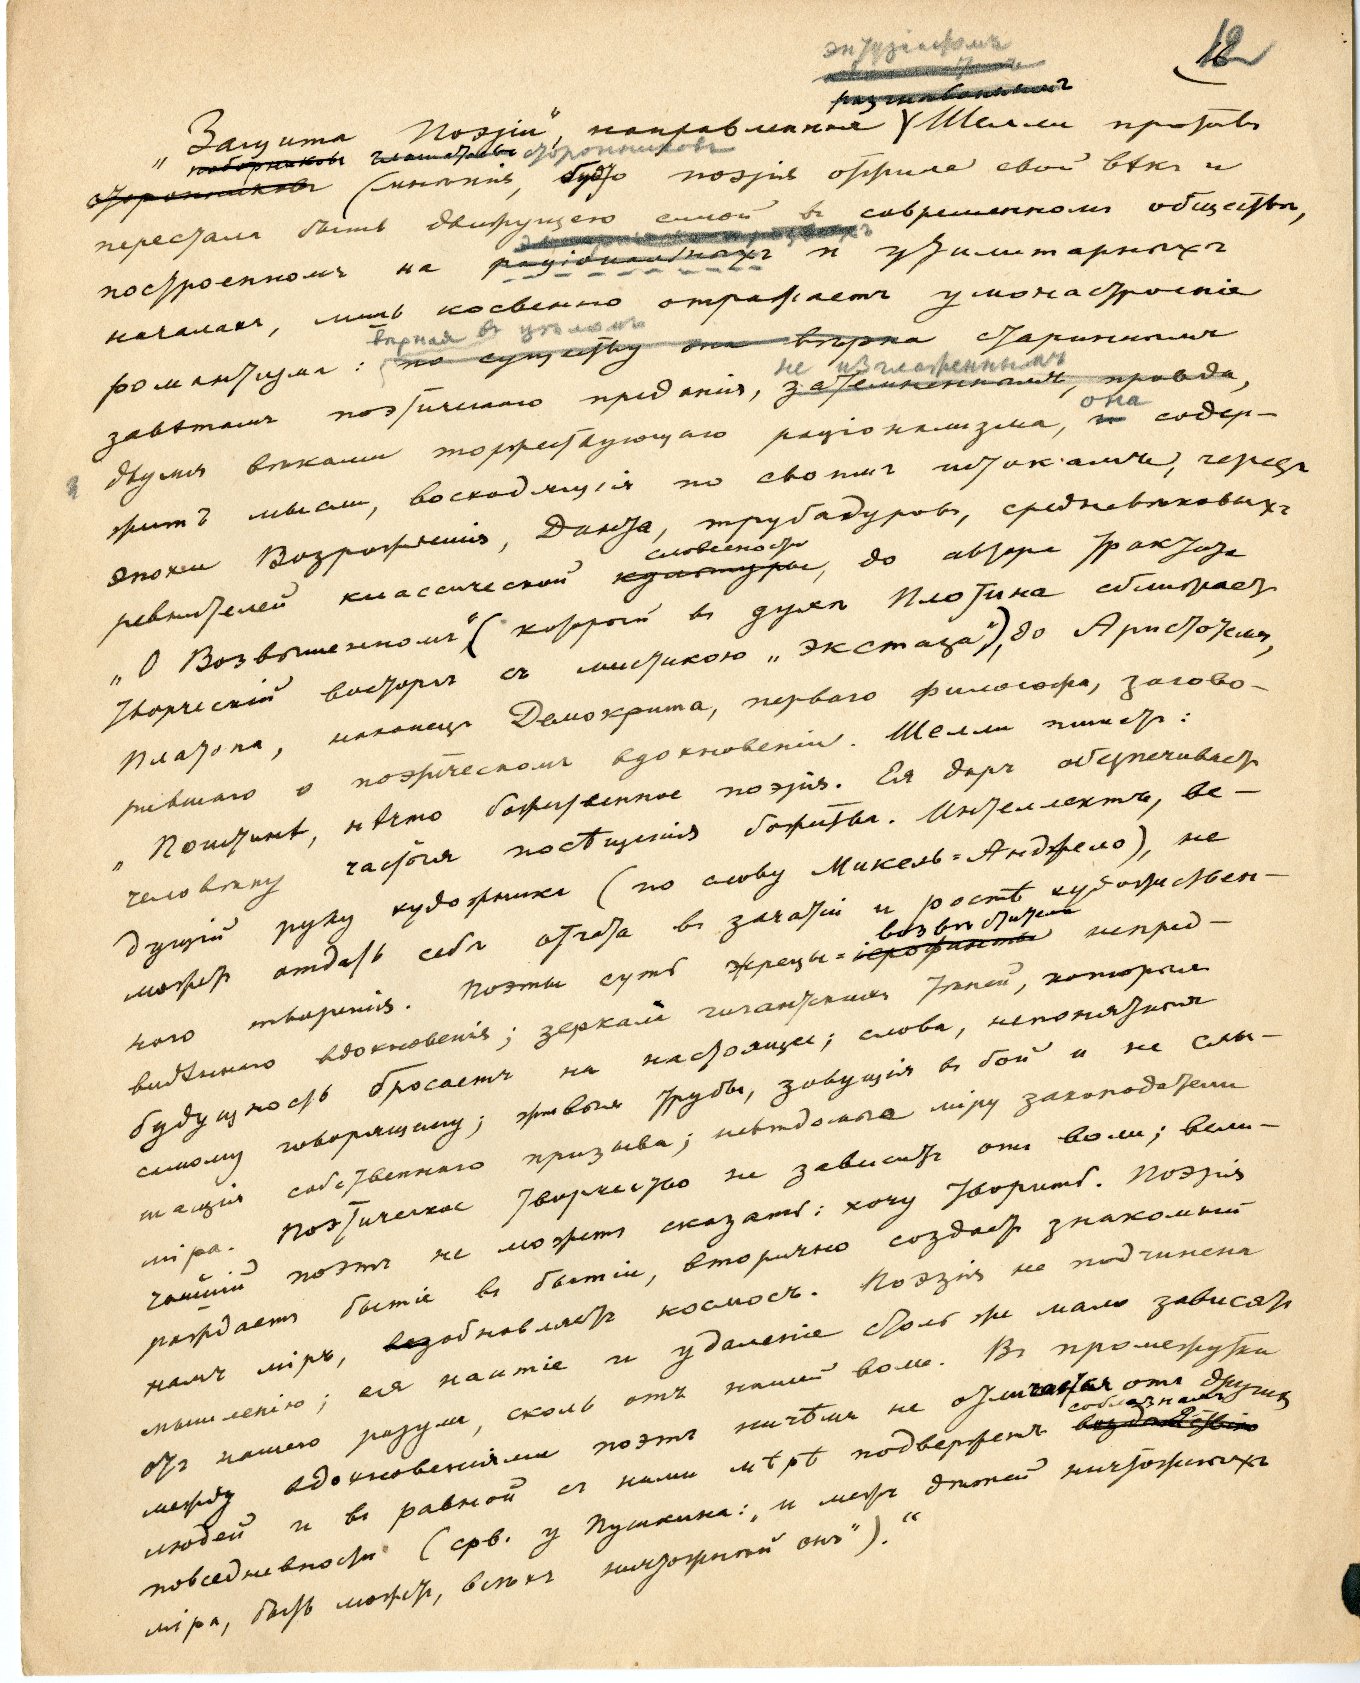 энтузіастомъ
12
„Защита Поэзіи“, направленная Шелли противъ
поборниковъ глашатаевъ сторонниковъ
сторонниковъ (мнѣнія, будто поэзія отжила свой вѣкъ и
перестала быть движущею силой въ современномъ обществѣ,
построенномъ на раціональныхъ и утилитарныхъ
началахъ, лишь косвенно отражаетъ умонастроеніе
вѣрная въ цѣломъ
романтизма: по существу она вѣрна стариннымъ
не изглаженнымъ
завѣтамъ поэтическаго преданія, затемненнымъ, правда,
она
двумя вѣками торжествующаго раціонализма, и содер-
житъ мысли, восходящія по своимъ истокамъ, черезъ
эпохи Возрожденія, Данта, трубадуровъ, средневѣковыхъ
словесности
ревнителей классической культуры, до автора трактата
„О Возвышенномъ“ (который въ духѣ Плотина сближаетъ
творческій восторгъ съ мистикою „экстаза“), до Аристотеля,
Платона, наконецъ Демокрита, перваго философа, загово-
рившаго о поэтическомъ вдохновеніи. Шелли пишетъ:
„Поистинѣ, нѣчто божественное поэзія. Ея даръ обезпечиваетъ
человѣку частыя посѣщенія божества. Интеллектъ, ве-
дущій руку художника (по слову Микель-Анджело), не
можетъ отдать себѣ отчета въ зачатіи и ростѣ художествен-
возвѣстители
наго творенія. Поэты суть жрецы-іерофанты непред-
видѣннаго вдохновенія; зеркала гигантскихъ тѣней, которыя
будущность бросаетъ на настоящее; слова, непонятныя
самому говорящему; живыя трубы, зовущія въ бой и не слы-
шащія собственнаго призыва; невѣдомые міру законодатели
міра. Поэтическое творчество не зависитъ отъ воли; вели-
чайшій поэтъ не можетъ сказать: хочу творить. Поэзія
рождаетъ бытіе въ бытіи, вторично создаетъ знакомый
намъ міръ, возобновляетъ космосъ. Поэзія не подчинена
мышленію; ея наитіе и удаленіе столь же мало зависятъ
отъ нашего разума, сколь отъ нашей воли. Въ промежутки
между вдохновеніями поэтъ ничѣмъ не отличается отъ другихъ
соблазнамъ
людей и въ равной съ ними мѣрѣ подверженъ воздѣйствію
повседневности (срв. у Пушкина: „и межъ дѣтей ничтожныхъ
міра, быть можетъ, всѣхъ ничтожнѣй онъ“).“